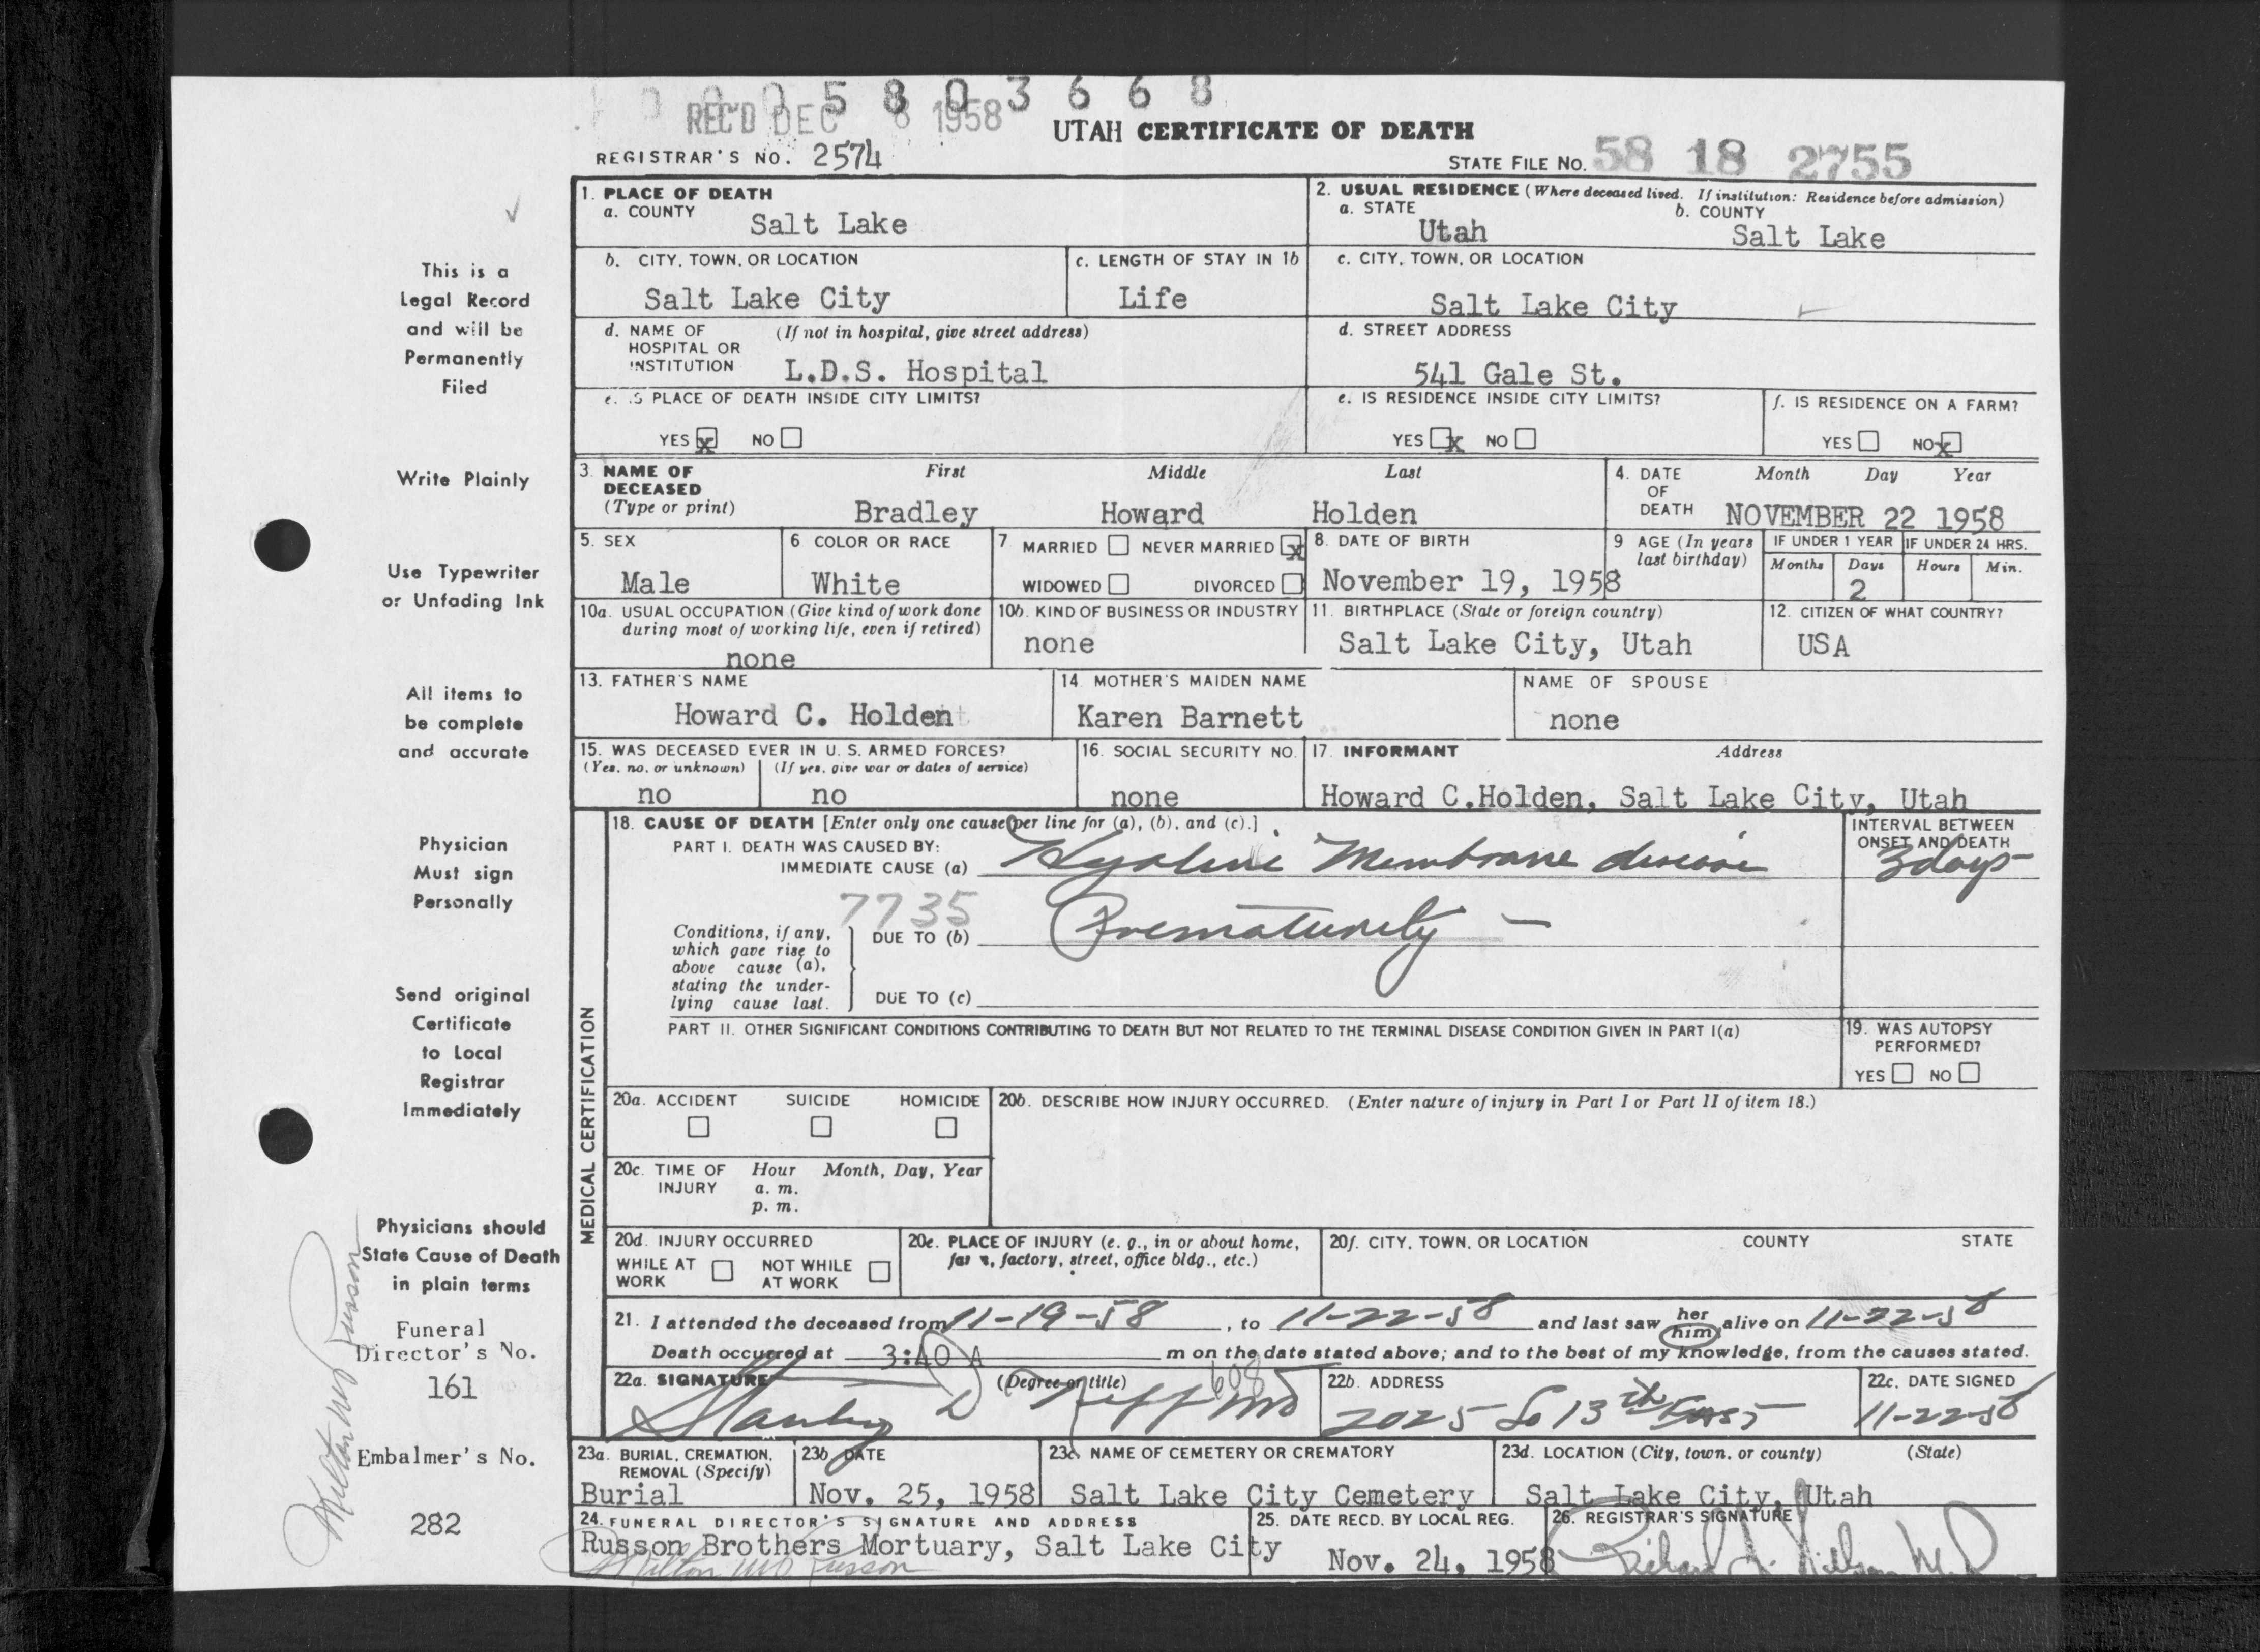 0 0 0 5 8 0 3 6 6 8
REC'D DEC 8 1958
UTAH CERTIFICATE OF DEATH
REGISTRAR'S NO. 2574
STATE FILE NO. 58 18 2755
1. PLACE OF DEATH
a. COUNTY
Salt Lake
2. USUAL RESIDENCE (Where deceased lived. If institution: Residence before admission)
a. STATE
Utah
b. COUNTY
Salt Lake
b. CITY, TOWN, OR LOCATION
Salt Lake City
c. LENGTH OF STAY IN 1b
Life
c. CITY, TOWN, OR LOCATION
Salt Lake City
d. NAME OF (If not in hospital, give street address)
HOSPITAL OR
INSTITUTION
L.D.S. Hospital
d. STREET ADDRESS
541 Gale St.
e. IS PLACE OF DEATH INSIDE CITY LIMITS?
YES x NO
e. IS RESIDENCE INSIDE CITY LIMITS?
YES x NO
f. IS RESIDENCE ON A FARM?
YES NO x
3. NAME OF DECEASED
(Type or print)
First Middle Last
Bradley Howard Holden
4. DATE OF DEATH
Month Day Year
NOVEMBER 22 1958
5. SEX
Male
6 COLOR OR RACE
White
7 MARRIED NEVER MARRIED x
WIDOWED DIVORCED
8. DATE OF BIRTH
November 19, 1958
9 AGE (In years last birthday)
IF UNDER 1 YEAR
Months Days
2
IF UNDER 24 HRS.
Hours Min.
10a. USUAL OCCUPATION (Give kind of work done
during most of working life, even if retired)
none
10b. KIND OF BUSINESS OR INDUSTRY
none
11. BIRTHPLACE (State or foreign country)
Salt Lake City, Utah
12. CITIZEN OF WHAT COUNTRY?
USA
13. FATHER'S NAME
Howard C. Holden
14. MOTHER'S MAIDEN NAME
Karen Barnett
NAME OF SPOUSE
none
15. WAS DECEASED EVER IN U. S. ARMED FORCES?
(Yes, no, or unknown) (If yes, give war or dates of service)
no no
16. SOCIAL SECURITY NO.
none
17. INFORMANT Address
Howard C.Holden, Salt Lake City, Utah
MEDICAL CERTIFICATION
18. CAUSE OF DEATH [Enter only one cause per line for (a), (b), and (c).]
PART I. DEATH WAS CAUSED BY:
IMMEDIATE CAUSE (a) Hyaline Membrane disease
INTERVAL BETWEEN
ONSET AND DEATH
3 days
7735
Conditions, if any,
which gave rise to
above cause (a),
stating the under-
lying cause last.
DUE TO (b) Prematurity —
DUE TO (c)
PART II. OTHER SIGNIFICANT CONDITIONS CONTRIBUTING TO DEATH BUT NOT RELATED TO THE TERMINAL DISEASE CONDITION GIVEN IN PART I(a)
19. WAS AUTOPSY
PERFORMED?
YES NO
20a. ACCIDENT SUICIDE HOMICIDE
20b. DESCRIBE HOW INJURY OCCURRED. (Enter nature of injury in Part I or Part II of item 18.)
20c. TIME OF INJURY
Hour Month, Day, Year
a. m.
p. m.
20d. INJURY OCCURRED
WHILE AT WORK NOT WHILE AT WORK
20e. PLACE OF INJURY (e. g., in or about home,
farm, factory, street, office bldg., etc.)
20f. CITY, TOWN, OR LOCATION COUNTY STATE
21. I attended the deceased from 11-19-58, to 11-22-58 and last saw her him alive on 11-22-58
Death occurred at 3:40 A m on the date stated above; and to the best of my knowledge, from the causes stated.
22a. SIGNATURE (Degree or title)
608
Stanley D Neff MD
22b. ADDRESS
2025 So 13th East
22c. DATE SIGNED
11-22-58
23a. BURIAL, CREMATION,
REMOVAL (Specify)
Burial
23b DATE
Nov. 25, 1958
23c. NAME OF CEMETERY OR CREMATORY
Salt Lake City Cemetery
23d. LOCATION (City, town, or county) (State)
Salt Lake City, Utah
24. FUNERAL DIRECTOR'S SIGNATURE AND ADDRESS
Russon Brothers Mortuary, Salt Lake City
Milton M Russon
25. DATE RECD. BY LOCAL REG.
Nov. 24, 1958
26. REGISTRAR'S SIGNATURE
Richard M.D
This is a
Legal Record
and will be
Permanently
Filed
Write Plainly
Use Typewriter
or Unfading Ink
All items to
be complete
and accurate
Physician
Must sign
Personally
Send original
Certificate
to Local
Registrar
Immediately
Physicians should
State Cause of Death
in plain terms
Funeral
Director's No.
161
Embalmer's No.
282
Milton M Russon